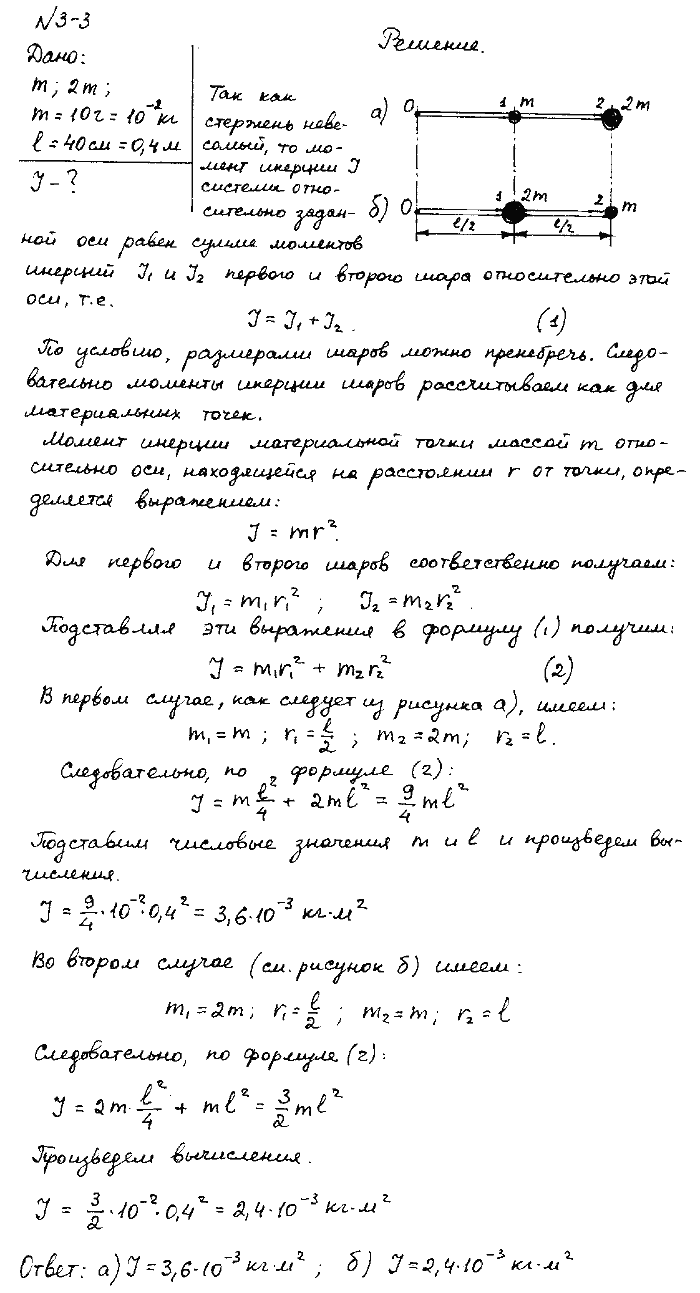 №3-3
Дано:
m; 2m;
m = 10г = 10⁻² кг
l = 40см = 0,4 м
J - ?
Решение.
Так как
стержень неве-
сомый, то мо-
мент инерции J
системы отно-
сительно задан-
а) 0 1 m 2 2m
б) 0 1 2m 2 m
l/2 l/2
ной оси равен сумме моментов
инерций J₁ и J₂ первого и второго шара относительно этой
оси, т.е.
J = J₁ + J₂. (1)
По условию, размерами шаров можно пренебречь. Следо-
вательно моменты инерции шаров рассчитываем как для
материальных точек.
Момент инерции материальной точки массой m отно-
сительно оси, находящейся на расстоянии r от точки, опре-
деляется выражением:
J = mr².
Для первого и второго шаров соответственно получаем:
J₁ = m₁r₁² ; J₂ = m₂r₂².
Подставляя эти выражения в формулу (1) получим:
J = m₁r₁² + m₂r₂² (2)
В первом случае, как следует из рисунка а), имеем:
m₁ = m ; r₁ = l/2 ; m₂ = 2m; r₂ = l.
Следовательно, по формуле (2):
J = m l²/4 + 2ml² = 9/4 ml²
Подставим числовые значения m и l и произведем вы-
числения.
J = 9/4 · 10⁻² · 0,4² = 3,6·10⁻³ кг·м²
Во втором случае (см. рисунок б) имеем:
m₁ = 2m; r₁ = l/2 ; m₂ = m; r₂ = l
Следовательно, по формуле (2):
J = 2m · l²/4 + ml² = 3/2 ml²
Произведем вычисления.
J = 3/2 · 10⁻² · 0,4² = 2,4·10⁻³ кг·м²
Ответ: а) J = 3,6·10⁻³ кг·м² ; б) J = 2,4·10⁻³ кг·м²